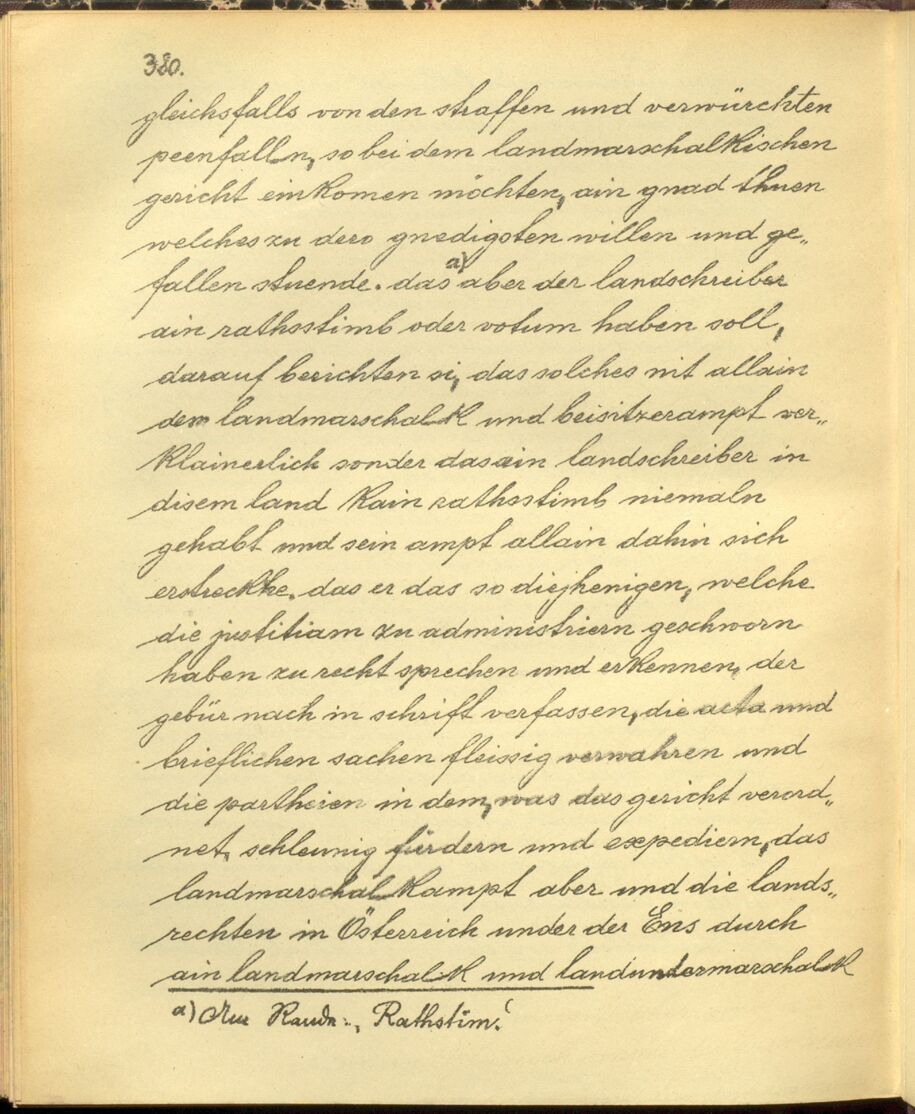 380.
gleichsfalls von den straffen und verwürchten
peenfalln, so bei dem landmarschalkischen
gericht einkomen möchten, ain gnad thuen
welches zu dero gnedigsten willen und ge„
fallen stuende. das a) aber der landschreiber
ain rathsstimb oder votum haben soll,
darauf berichten si, das solches nit allain
dem landmarschalk und beisitzerampt ver„
klainerlich sonder das ain landschreiber in
disem land kain rathsstimb niemaln
gehabt und sein ampt allain dahin sich
erstreckhe, das er das so diejhenigen, welche
die justitiam zu administriern geschworn
haben zu recht sprechen und erkennen, der
gebür nach in schrift verfassen, die acta und
brieflichen sachen fleissig verwahren und
die partheien in dem, was das gericht verord„
net, schleunig fürdern und expediern, das
landmarschalkampt aber und die lands„
rechten in Österreich under der Ens durch
ain landmarschalk und landundermarschalk
a) Am Rande: „Rathstim.“